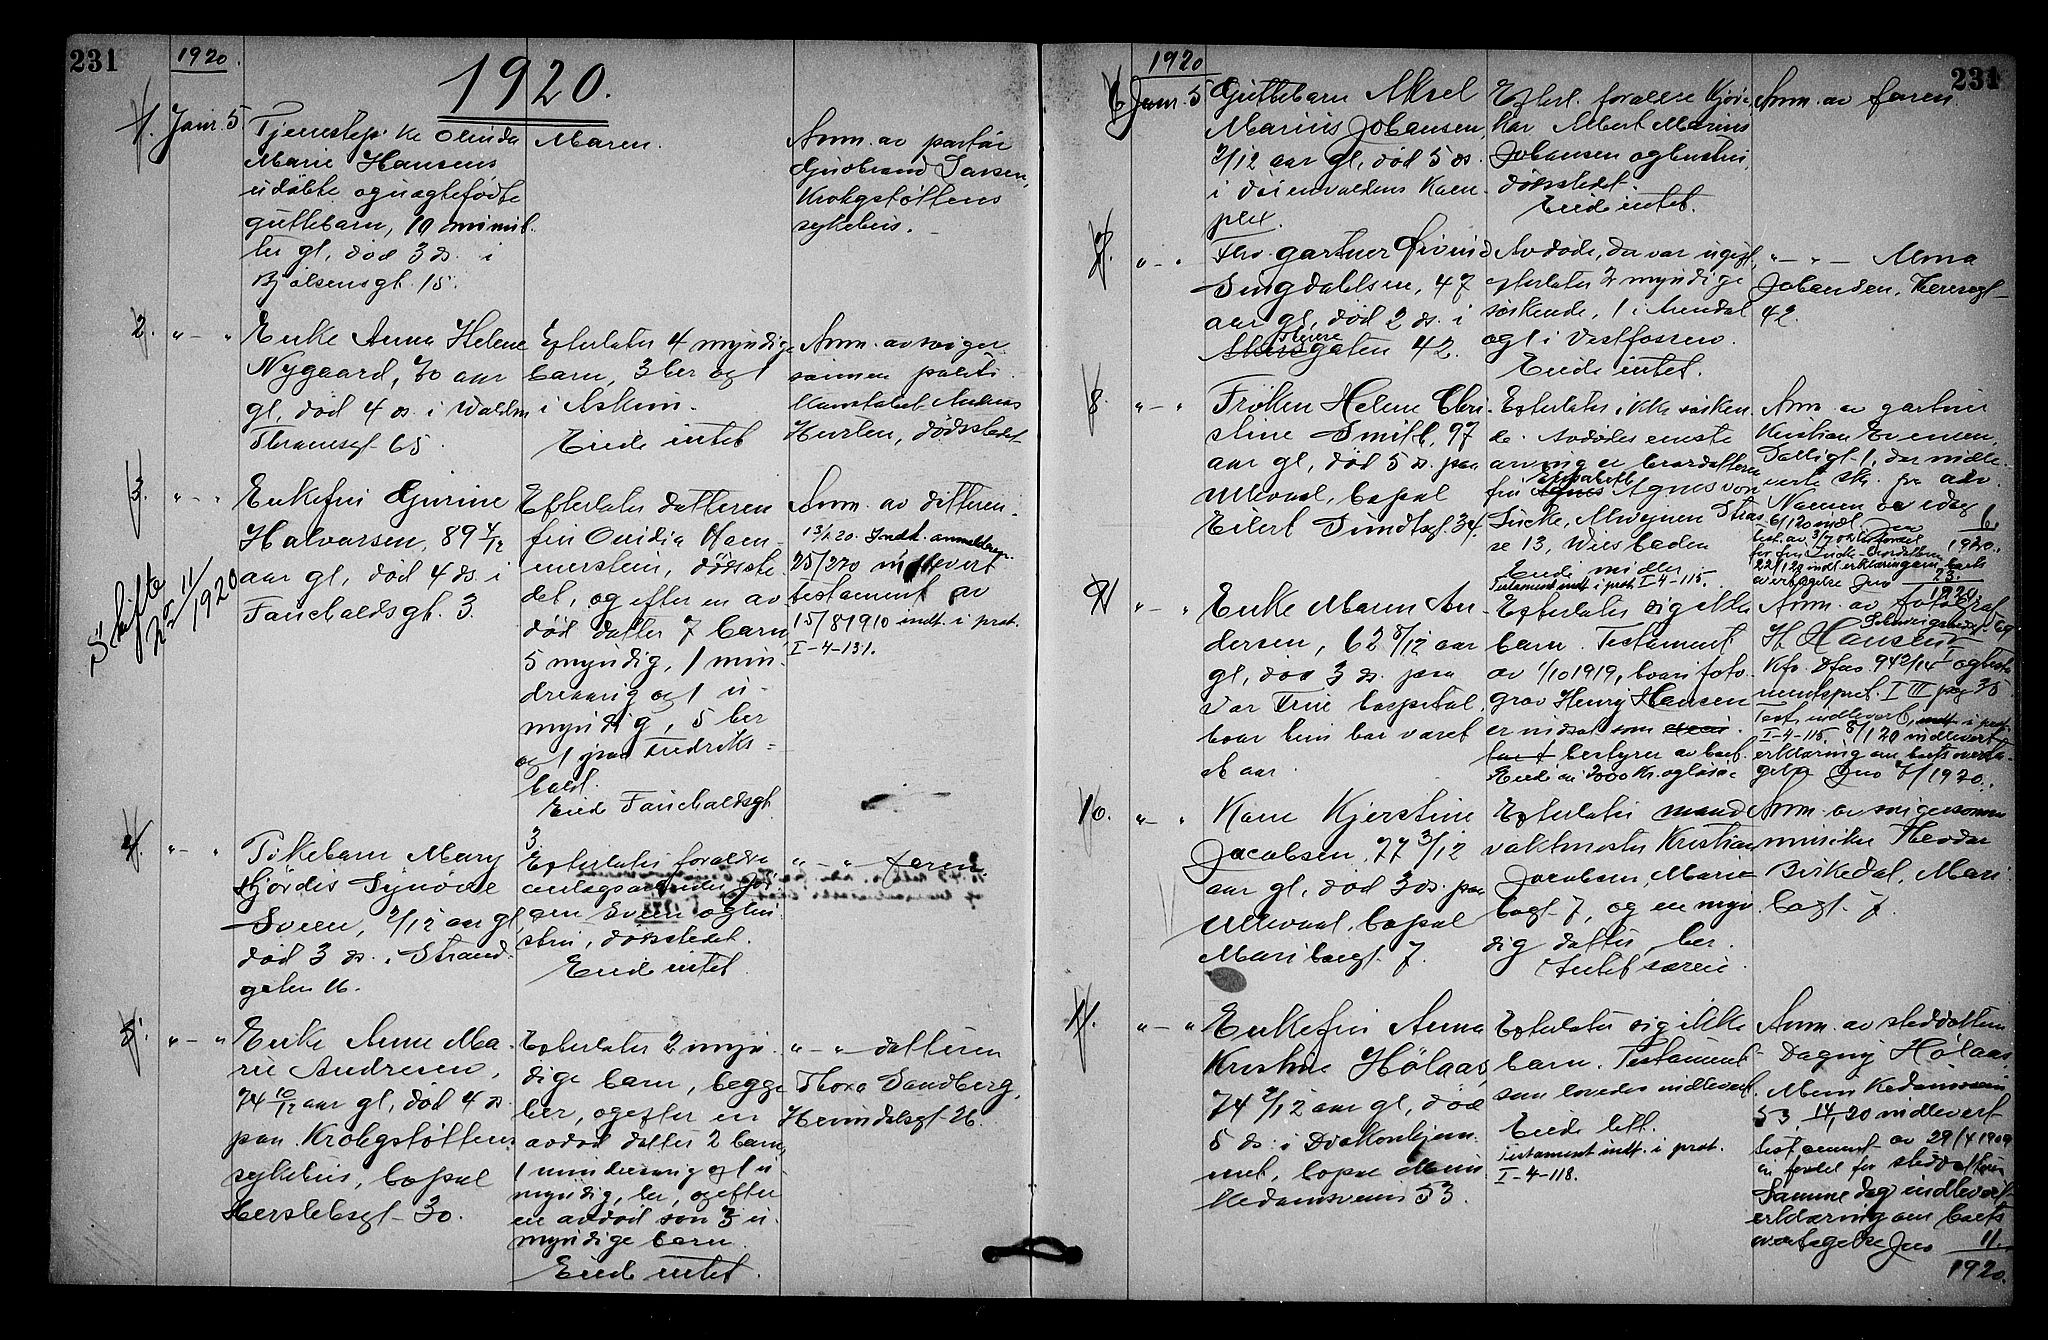 231
1920.
1920.
1. Janr. 5.
Tjenestepi. Ke Olinda
Marie Hansens
udøbte og uægtefødte
guttebarn, 10 minut-
ter gl., død 3 ds. i
Bjølsensgt. 15.
Moren.
Anm. av portør
Gudbrand Larsen,
Krohgstøttens
sykehus.
2. " - "
Enke Anna Helene
Nygaard, 70 aar
gl., død 4 ds. i Waldm
Thranesgt 65.
Efterlater 4 myndige
barn, 3 her og 1
i Askim.
Eiede intet
Anm. av sviger-
sønnen politi-
konstabel Andreas
Hurlen, dødsstedet
3. " - "
Skifte
25/11 1920
Enkefru Gurine
Halvorsen, 89 4/12
aar gl., død 4 ds. i
Fauchaldsgt. 3.
Efterlater datteren
fru Ovidia Ham-
merstein, dødsste-
det, og efter en av-
død datter 7 barn
5 myndig, 1 min-
dreaarig og 1 u-
myndig, 5 her
og 1 paa Fredriks-
hald.
Eied Fauchaldsgt.
3.
Anm. av datteren.
13/1 20. Indk. anmeldtes
25/2 20 indlevert
testament av
15/8 1910 indt. i prot.
I-4-131.
4. " - "
Pikebarn Mary
Hjørdis Synøve
Sveen, 2/12 aar gl.,
død 3 ds. i Strand-
gaten 16.
Efterlater forældre
anlægsarbeider Jør-
gen Sveen og hu-
stru, dødsstedet.
Eiede intet.
" - " faren.
5. " - "
Enke Anne Ma-
rie Andresen,
74 10/12 aar gl., død 4 ds.
paa Krohgstøttens
sykehus, bopæl
Herslebsgt. 30.
Efterlater 2 myn-
dige barn, begge
her, og efter en
avdød datter 2 barn,
1 mindreaarig og 1 u-
myndig, her, og efter
en avdød søn 3 u-
myndige barn.
Eiede intet.
" - " datteren
Thora Sandberg,
Heimdalsgt. 26.
231
1920
6 Janr. 5
Guttebarn Aksel
Marius Johansen,
7/12 aar gl., død 5 ds.
i Torvaldens Kom-
plex.
Efterl. forældre kjøre-
kar Albert Marius
Johansen og hustru,
dødsstedet.
Eiede intet.
Anm. av faren
7. " - "
Fhv. gartner Øivind
Smgdahlsen, 47
aar gl., død 2 ds. i
Akersgaten 42.
Avdøde, der var ugift,
efterlater 2 myndige
søskende, 1 i Arendal
og 1 i Vestfossen.
Eiede intet.
" - " - Alma
Johansen, Theresegt-
42.
8. " - "
Frøken Helene Chri-
stine Smith, 97
aar gl., død 5 ds. paa
Ulleval, bopæl
Eilert Sundtsgt. 34.
Efterlater ikke søsken-
de. Avdødes eneste
arving er brordatteren
fru Elisabeth Agnes von
Lücke, Alwinen Stras
se 13, Wiesbaden
Eiede midler
Testament indt. i prot. I-4-115.
Anm. av gartner
Kristian Evensen,
der indle-
verte skr. fra adv.
Naumen av idag
6/1 20 indl.
test. av
for fru Lücke Brordatteren
22/1 20 indl. erklæring om boets
overtagelse Jno 23
1920.
9. " - "
Enke Maren An-
dersen, 62 8/12 aar
gl., død 3 ds. paa
Vor Frue hospital,
hvor hun har været
et aar.
Efterlater sig ikke
barn. Testament
av 1/10 1919, hvori foto-
grav Henry Hansen
er indsat som
bestyrer av boet.
Eiede ca 2000 kr. og løsøre
Anm. av fotograf
H. Hansen
mentsprot. I III pag 35
Test. indlevert, indt. i prot.
I-4-115. 8/1 20 indlevert
erklæring om boets overta-
gelse Jno 7/1920.
10. " - "
Kone Kjerstine
Jacobsen, 77 3/12
aar gl., død 3 ds. paa
Ulleval, bopæl
Maribogt. 7.
Efterlater mand
vaktmester Kristian
Jacobsen, Mari-
bogt. 7, og en myn-
dig datter, her.
Intet særeie.
Anm. av svigersønnen
musiker Theodor
Birkedal, Mari-
bogt. 7.
11. " - "
Enkefru Anna
Kristine Hølaas,
74 2/12 aar gl., død
5 ds. i Diakonhjem-
met, bopæl Mun-
kedamsveien 53.
Efterlater sig ikke
barn. Testament
som loves indlevert.
Eiede litt.
Testament indt. i prot.
I-4-118.
Anm. av steddatteren
Dagny Hølaas,
Munkedamsveien
53. 14/1 20 indlevert
testament av 29/4 1909
en fordel for steddatteren
Samme dag indlevert
erklæring om boets
overtagelse Jno 11
1920.